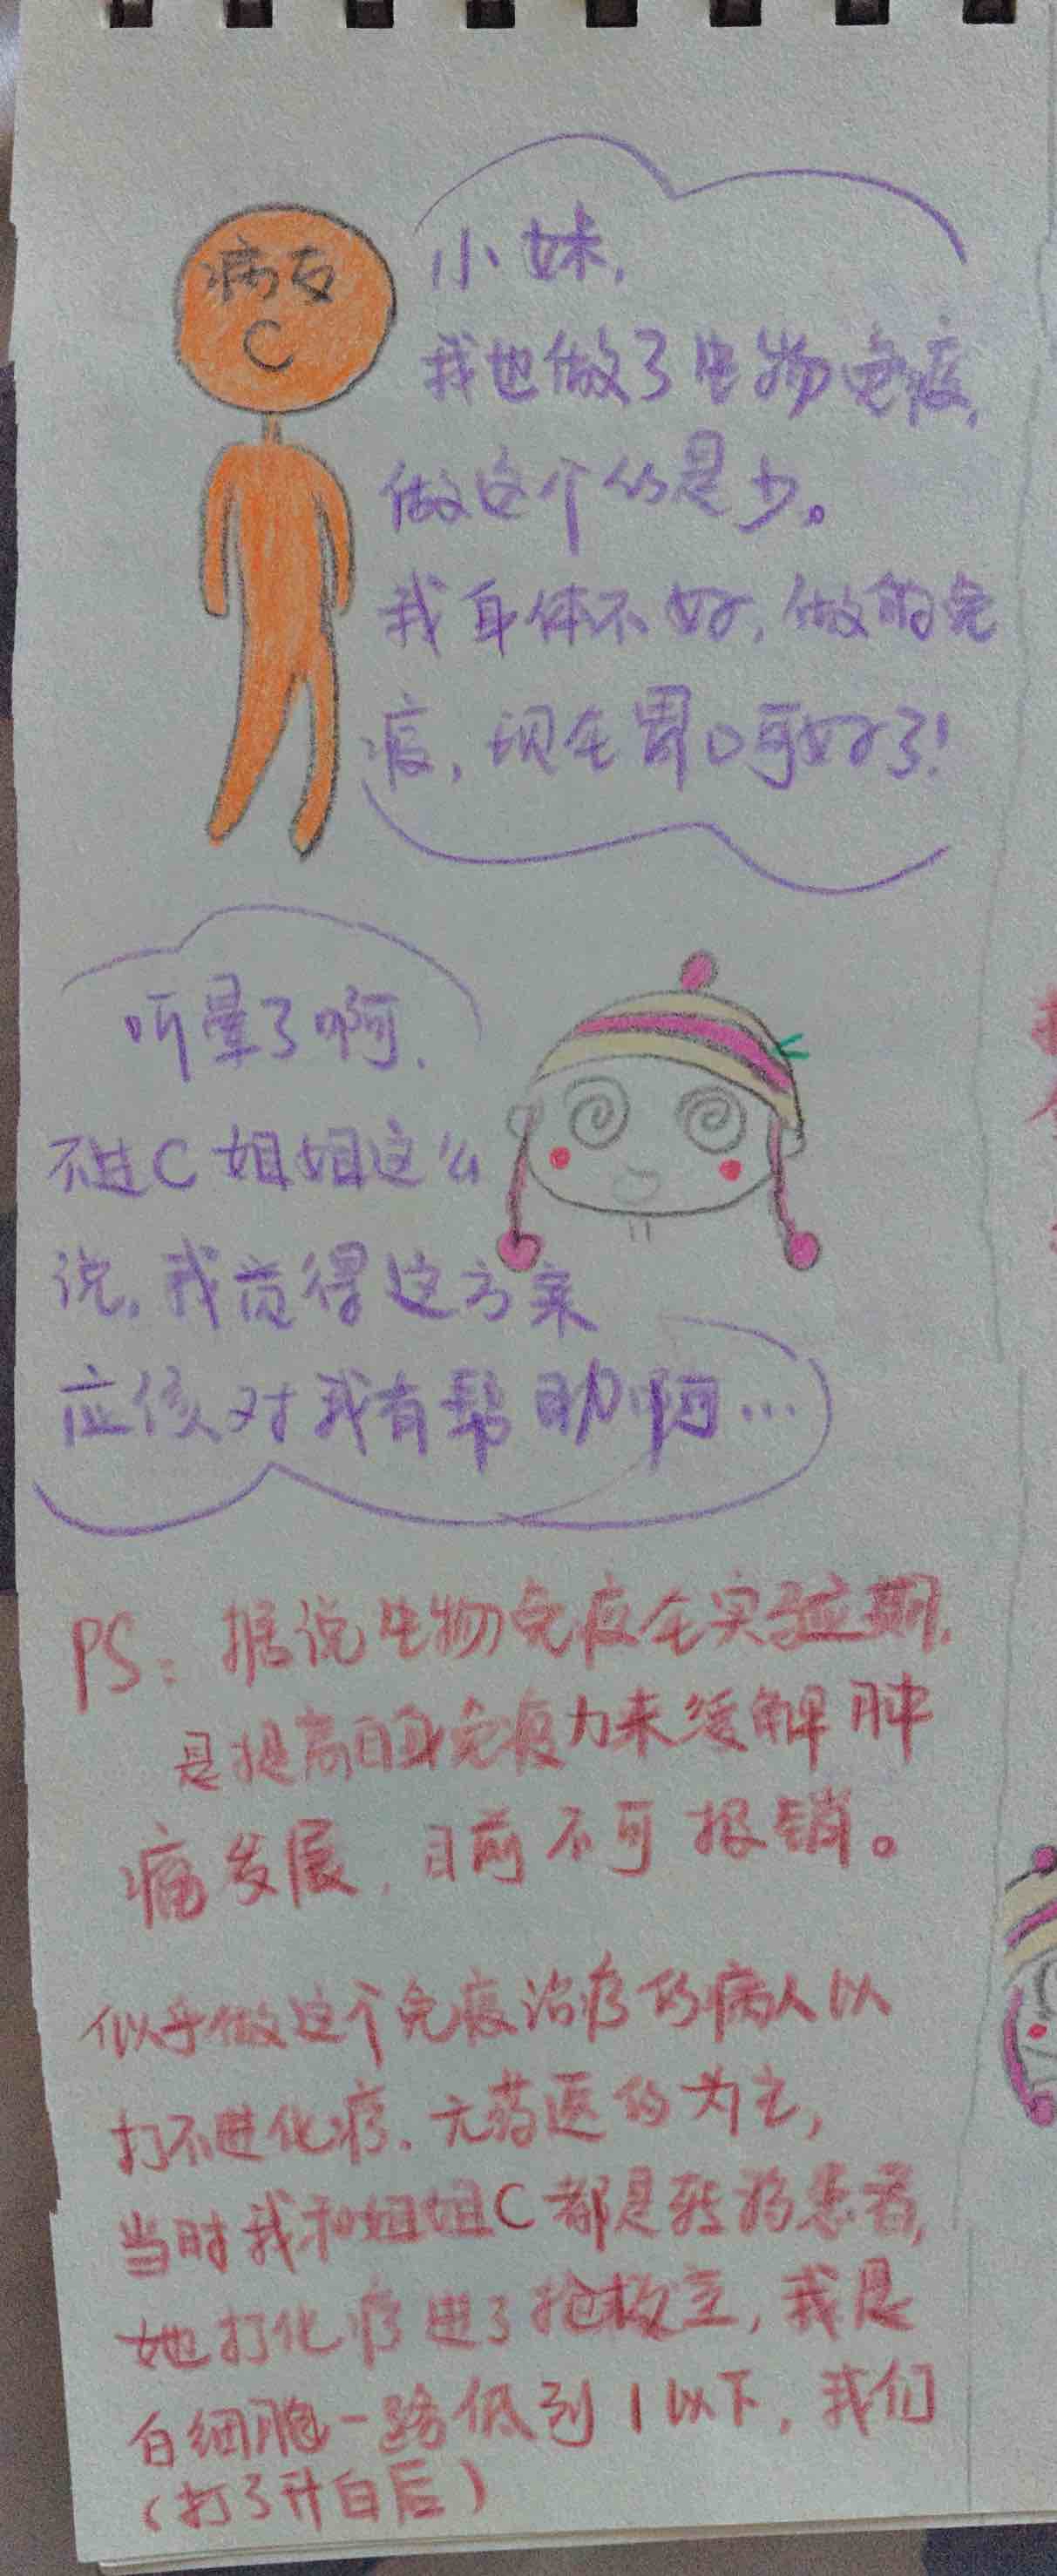 病友
C
小妹,
我也做了生物免疫,
做这个的是少。
我身体不好,做的免
疫,现在胃口可好了!
听晕了啊.
不过C姐姐这么
说,我觉得这方案
应该对我有帮助啊...
PS:据说生物免疫在实验期,
是提高自身免疫力来缓解肿
瘤发展,目前不可报销。
似乎做这个免疫治疗的病人以
打不进化疗.无药医的为主,
当时我和姐姐C都是转移患者,
她打化疗进了抢救室,我是
白细胞一路低到1以下,我们
(打了升白后)